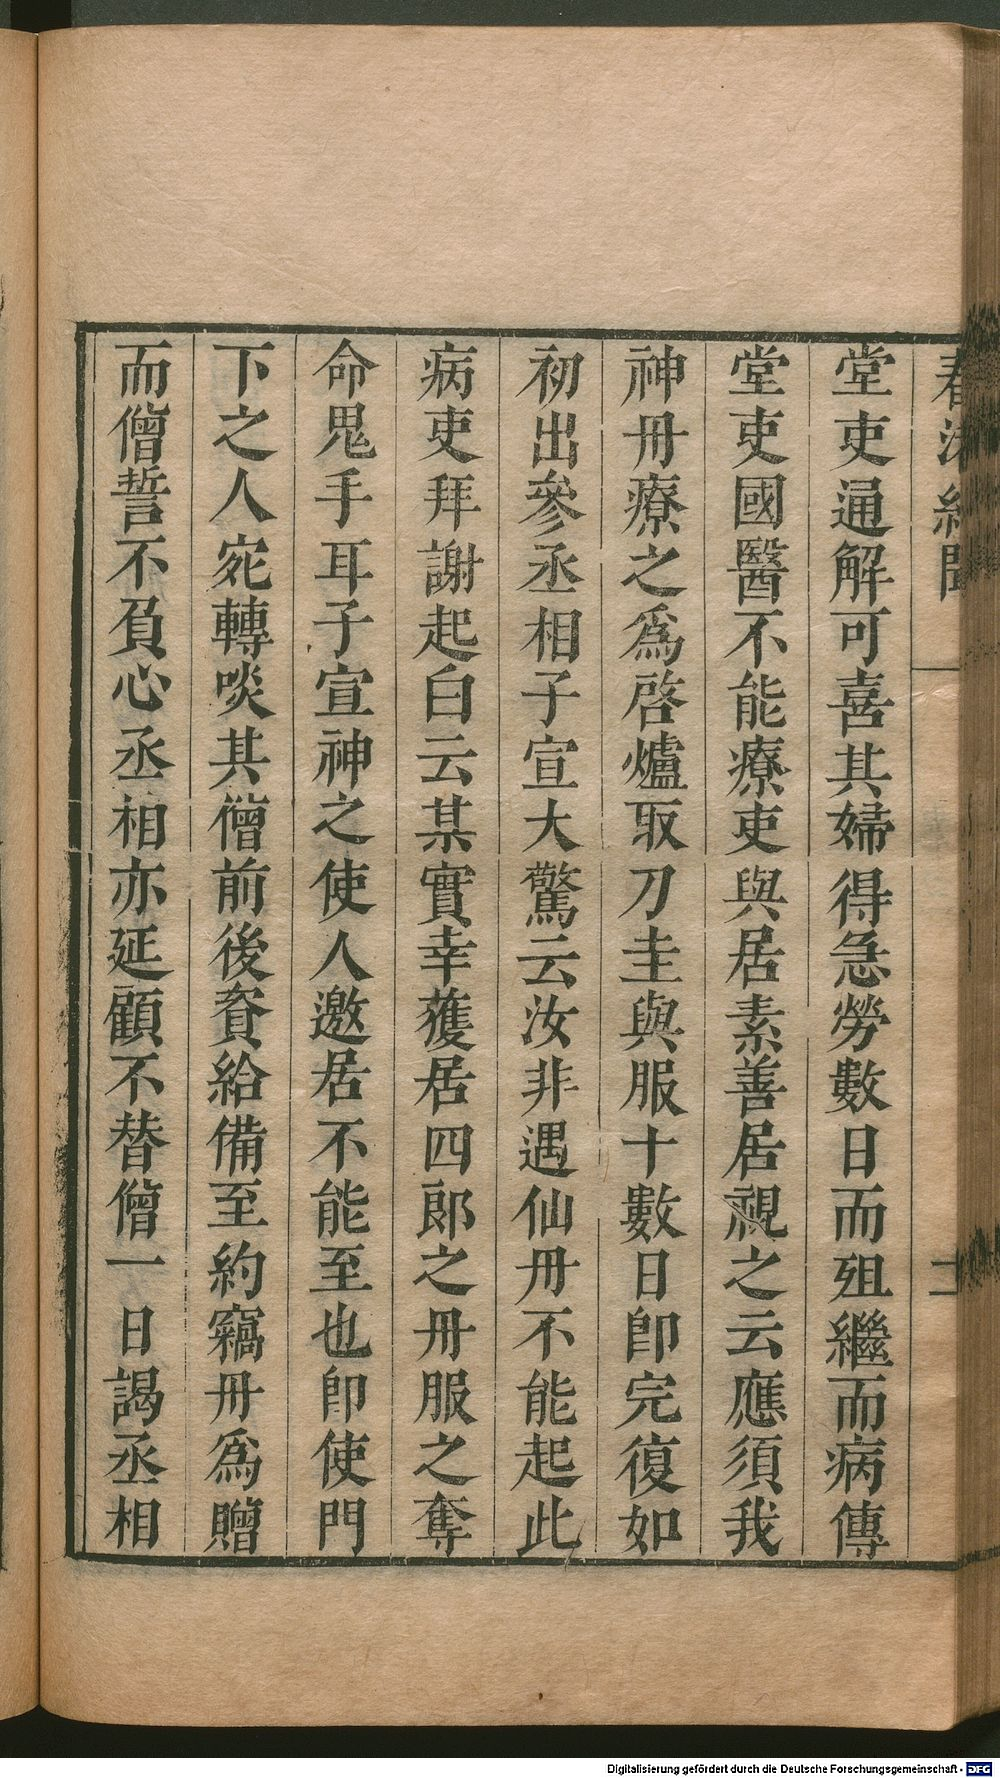 春渚紀聞
二
堂吏通解可喜其婦得急勞數日而殂繼而病傳
堂吏國醫不能療吏與居素善居視之云應須我
神丹療之爲啓爐取刀圭與服十數日卽完復如
初出參丞相子宣大驚云汝非遇仙丹不能起此
病吏拜謝起白云某實幸獲居四郎之丹服之奪
命鬼手耳子宣神之使人邀居不能至也卽使門
下之人宛轉啖其僧前後賫給備至約竊丹爲贈
而僧誓不負心丞相亦延顧不替僧一日謁丞相
Digitalisierung gefördert durch die Deutsche Forschungsgemeinschaft - DFG